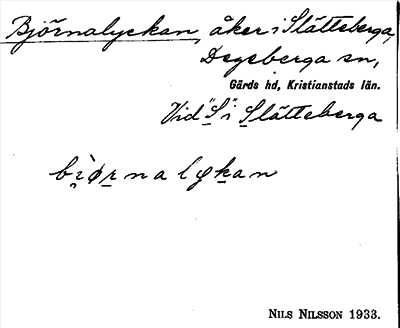 Björnalyckan, åker i Slätteberga,
Degeberga sn,
Gärds hd, Kristianstads län.
Vid "S" i Slätteberga
bi̯̇̀øṟnalyḵan
NILS NILSSON 1933.